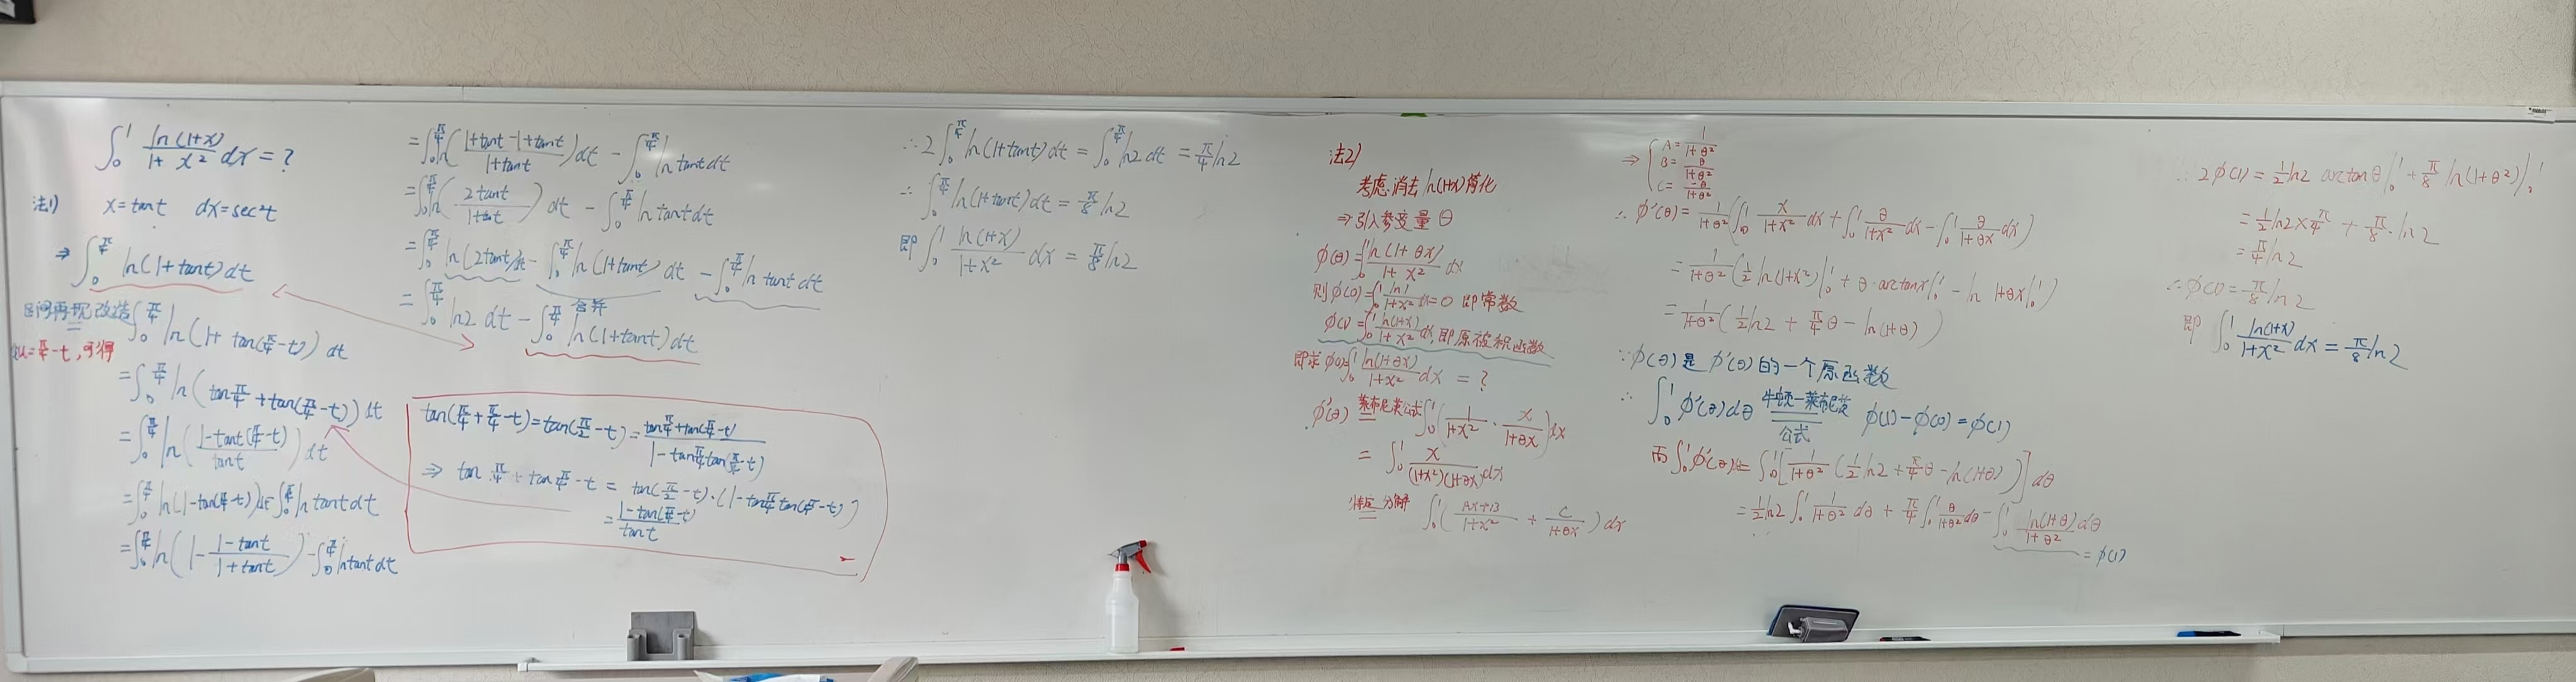 ∫₀¹ ln(1+x)/(1+x²) dx = ?
法1) x=tant dx=sec²t
⇒ ∫₀^(π/4) ln(1+tant)dt
区间再现 改造 ∫₀^(π/4) ln(1+tan(π/4-t)) dt
令u=π/4-t,可得
=∫₀^(π/4) ln(tanπ/4+tan(π/4-t)) dt
=∫₀^(π/4) ln((1-tant(π/4-t))/tant) dt
=∫₀^(π/4) ln(1-tan(π/4-t))dt-∫₀^(π/4) ln tant dt
=∫₀^(π/4) ln(1-(1-tant)/(1+tant))-∫₀^(π/4) ln tant dt
=∫₀^(π/4) ln((1+tant-1+tant)/(1+tant))dt - ∫₀^(π/4) ln tant dt
=∫₀^(π/4) ln(2tant/(1+tant)) dt - ∫₀^(π/4) ln tant dt
=∫₀^(π/4) ln(2tant)dt - ∫₀^(π/4) ln(1+tant) dt - ∫₀^(π/4) ln tant dt
合并
=∫₀^(π/4) ln2 dt - ∫₀^(π/4) ln(1+tant)dt
tan(π/4+π/4-t)=tan(π/2-t)=(tanπ/4+tan(π/4-t))/(1-tanπ/4tan(π/4-t))
⇒ tan π/4 + tan π/4-t = tan(π/2-t)·(1-tanπ/4tan(π/4-t))
=(1-tan(π/4-t))/tant
∴2∫₀^(π/4) ln(1+tant)dt = ∫₀^(π/4) ln2 dt = π/4 ln2
∴ ∫₀^(π/4) ln(1+tant)dt = π/8 ln2
即 ∫₀¹ ln(1+x)/(1+x²) dx = π/8 ln2
法2)
考虑消去 ln(1+x) 简化
⇒引入参变量 θ
φ(θ)=∫₀¹ ln(1+θx)/(1+x²) dx
则φ(0)=∫₀¹ ln1/(1+x²) dx=0 即常数
φ(1)=∫₀¹ ln(1+x)/(1+x²) dx,即原被积函数
即求 φ(1)=∫₀¹ ln(1+θx)/(1+x²) dx = ?
φ'(θ) 莱布尼茨公式= ∫₀¹(1/(1+x²) · x/(1+θx))dx
= ∫₀¹ x/((1+x²)(1+θx)) dx
待定分解= ∫₀¹((Ax+B)/(1+x²) + C/(1+θx)) dx
⇒ { A=1/(1+θ²)
B=θ/(1+θ²)
C=-θ/(1+θ²)
∴ φ'(θ)=1/(1+θ²)(∫₀¹ x/(1+x²) dx+∫₀¹ θ/(1+x²) dx-∫₀¹ θ/(1+θx) dx)
= 1/(1+θ²)(½ ln(1+x²)|₀¹ + θ·arctanx|₀¹ - ln 1+θx|₀¹)
= 1/(1+θ²)(½ln2 + π/4 θ - ln(1+θ))
∵φ(θ)是φ'(θ)的一个原函数
∴ ∫₀¹ φ'(θ)dθ 牛顿—莱布尼茨公式= φ(1)-φ(0)=φ(1)
而∫₀¹φ'(θ)dθ=∫₀¹[1/(1+θ²)(½ln2+π/4 θ-ln(1+θ))]dθ
=½ln2∫₀¹ 1/(1+θ²) dθ + π/4∫₀¹ θ/(1+θ²)dθ-∫₀¹ ln(1+θ)/(1+θ²) dθ
=φ(1)
∴ 2φ(1)=½ln2 arctanθ|₀¹+π/8 ln(1+θ²)|₀¹
=½ln2×π/4 + π/8·ln2
=π/4 ln2
∴φ(1)=π/8 ln2
即 ∫₀¹ ln(1+x)/(1+x²) dx=π/8 ln2